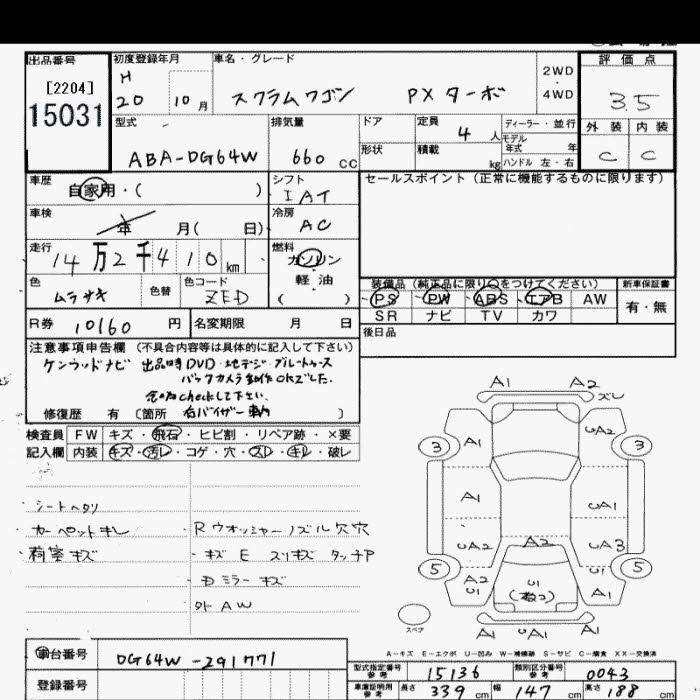 出品番号
[2204]
15031
初度登録年月
H
20 10 月
車名・グレード
スクラムワゴン PXターボ
2WD
・
4WD
評価点
3.5
外装 内装
C C
型式
ABA-DG64W
排気量
660 cc
ドア
形状
定員
4 人
積載
kg
ディーラー・並行
モデル
年式 年
ハンドル 左・右
車歴
自家用・( )
シフト
IAT
セールスポイント(正常に機能するものに限ります)
車検
年 月( 日)
冷房
AC
走行
14万2千410km
燃料
ガソリン
・
軽油
( )
色
ムラサキ
色替
色コード
ZED
装備品(純正品に限り○をつけてください)
PS PW ABS エアB AW
SR ナビ TV カワ
新車保証書
有・無
R券 10160 円
名変期限 月 日
後日品
注意事項申告欄(不具合内容等は具体的に記入して下さい)
ケンウッドナビ 出品時DVD・地デジ・ブルートゥース
バックカメラ動作OKでした.
念の為checkして下さい.
修復歴 有〔箇所 右バイザー車内 〕
検査員 FW キズ・飛石・ヒビ割・リペア跡・×要
記入欄 内装 キズ・汚レ・コゲ・穴・スレ・キレ・破レ
シートヘタリ
カーペットキレ
荷室キズ
Rウオッシャーノズル欠穴
キズ E スリキズ タッチア
ミラーキズ
外AW
A1 A2 ズレ
3 A1 UA2 3
A1 UA1
UA2 A2 UA3
5 A2 U1 U1 U1 A1 5
スペア
UA1 A1 UA1
A-キズ E-エクボ U-凹み W-補修跡 S-サビ C-腐食 XX-交換済
車台番号
DG64W-291771
登録番号
型式指定番号
参考
15136
類別区分番号
参考
0043
車庫証明用
参考
長さ 339 cm 幅 147 cm 高さ 188 cm